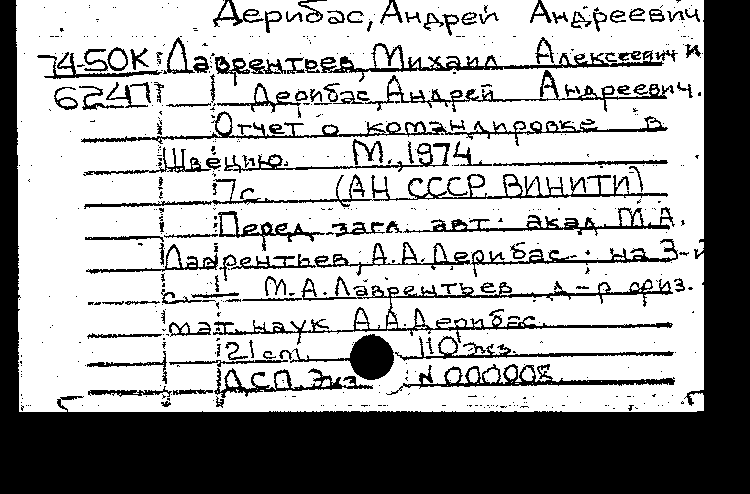 Дерибас, Андрей Андреевич
74-50К Лаврентьев, Михаил Алексеевич и
6247 Дерибас, Андрей Андреевич.
Отчет о командировке в
Швецию. М., 1974.
7с. (АН СССР. ВИНИТИ)
Перед загл. авт.: акад. М.А.
Лаврентьев, А.А. Дерибас.; на 3-й
с. — М.А. Лаврентьев, д-р физ.-
мат. наук А.А. Дерибас.
21 см. 110 экз.
Д.С.П. Экз. N 000008.